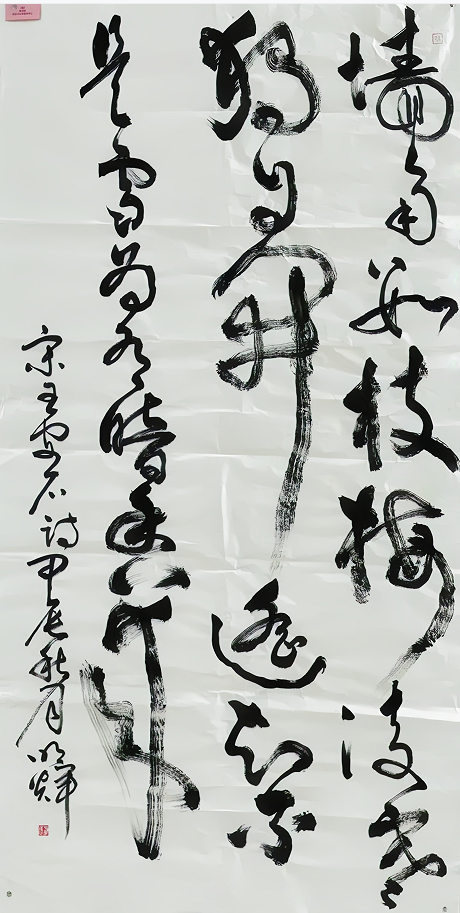 墙角数枝梅凌寒
独自開遥知不
是雪为有暗香来
宋王安石诗甲辰秋月明輝